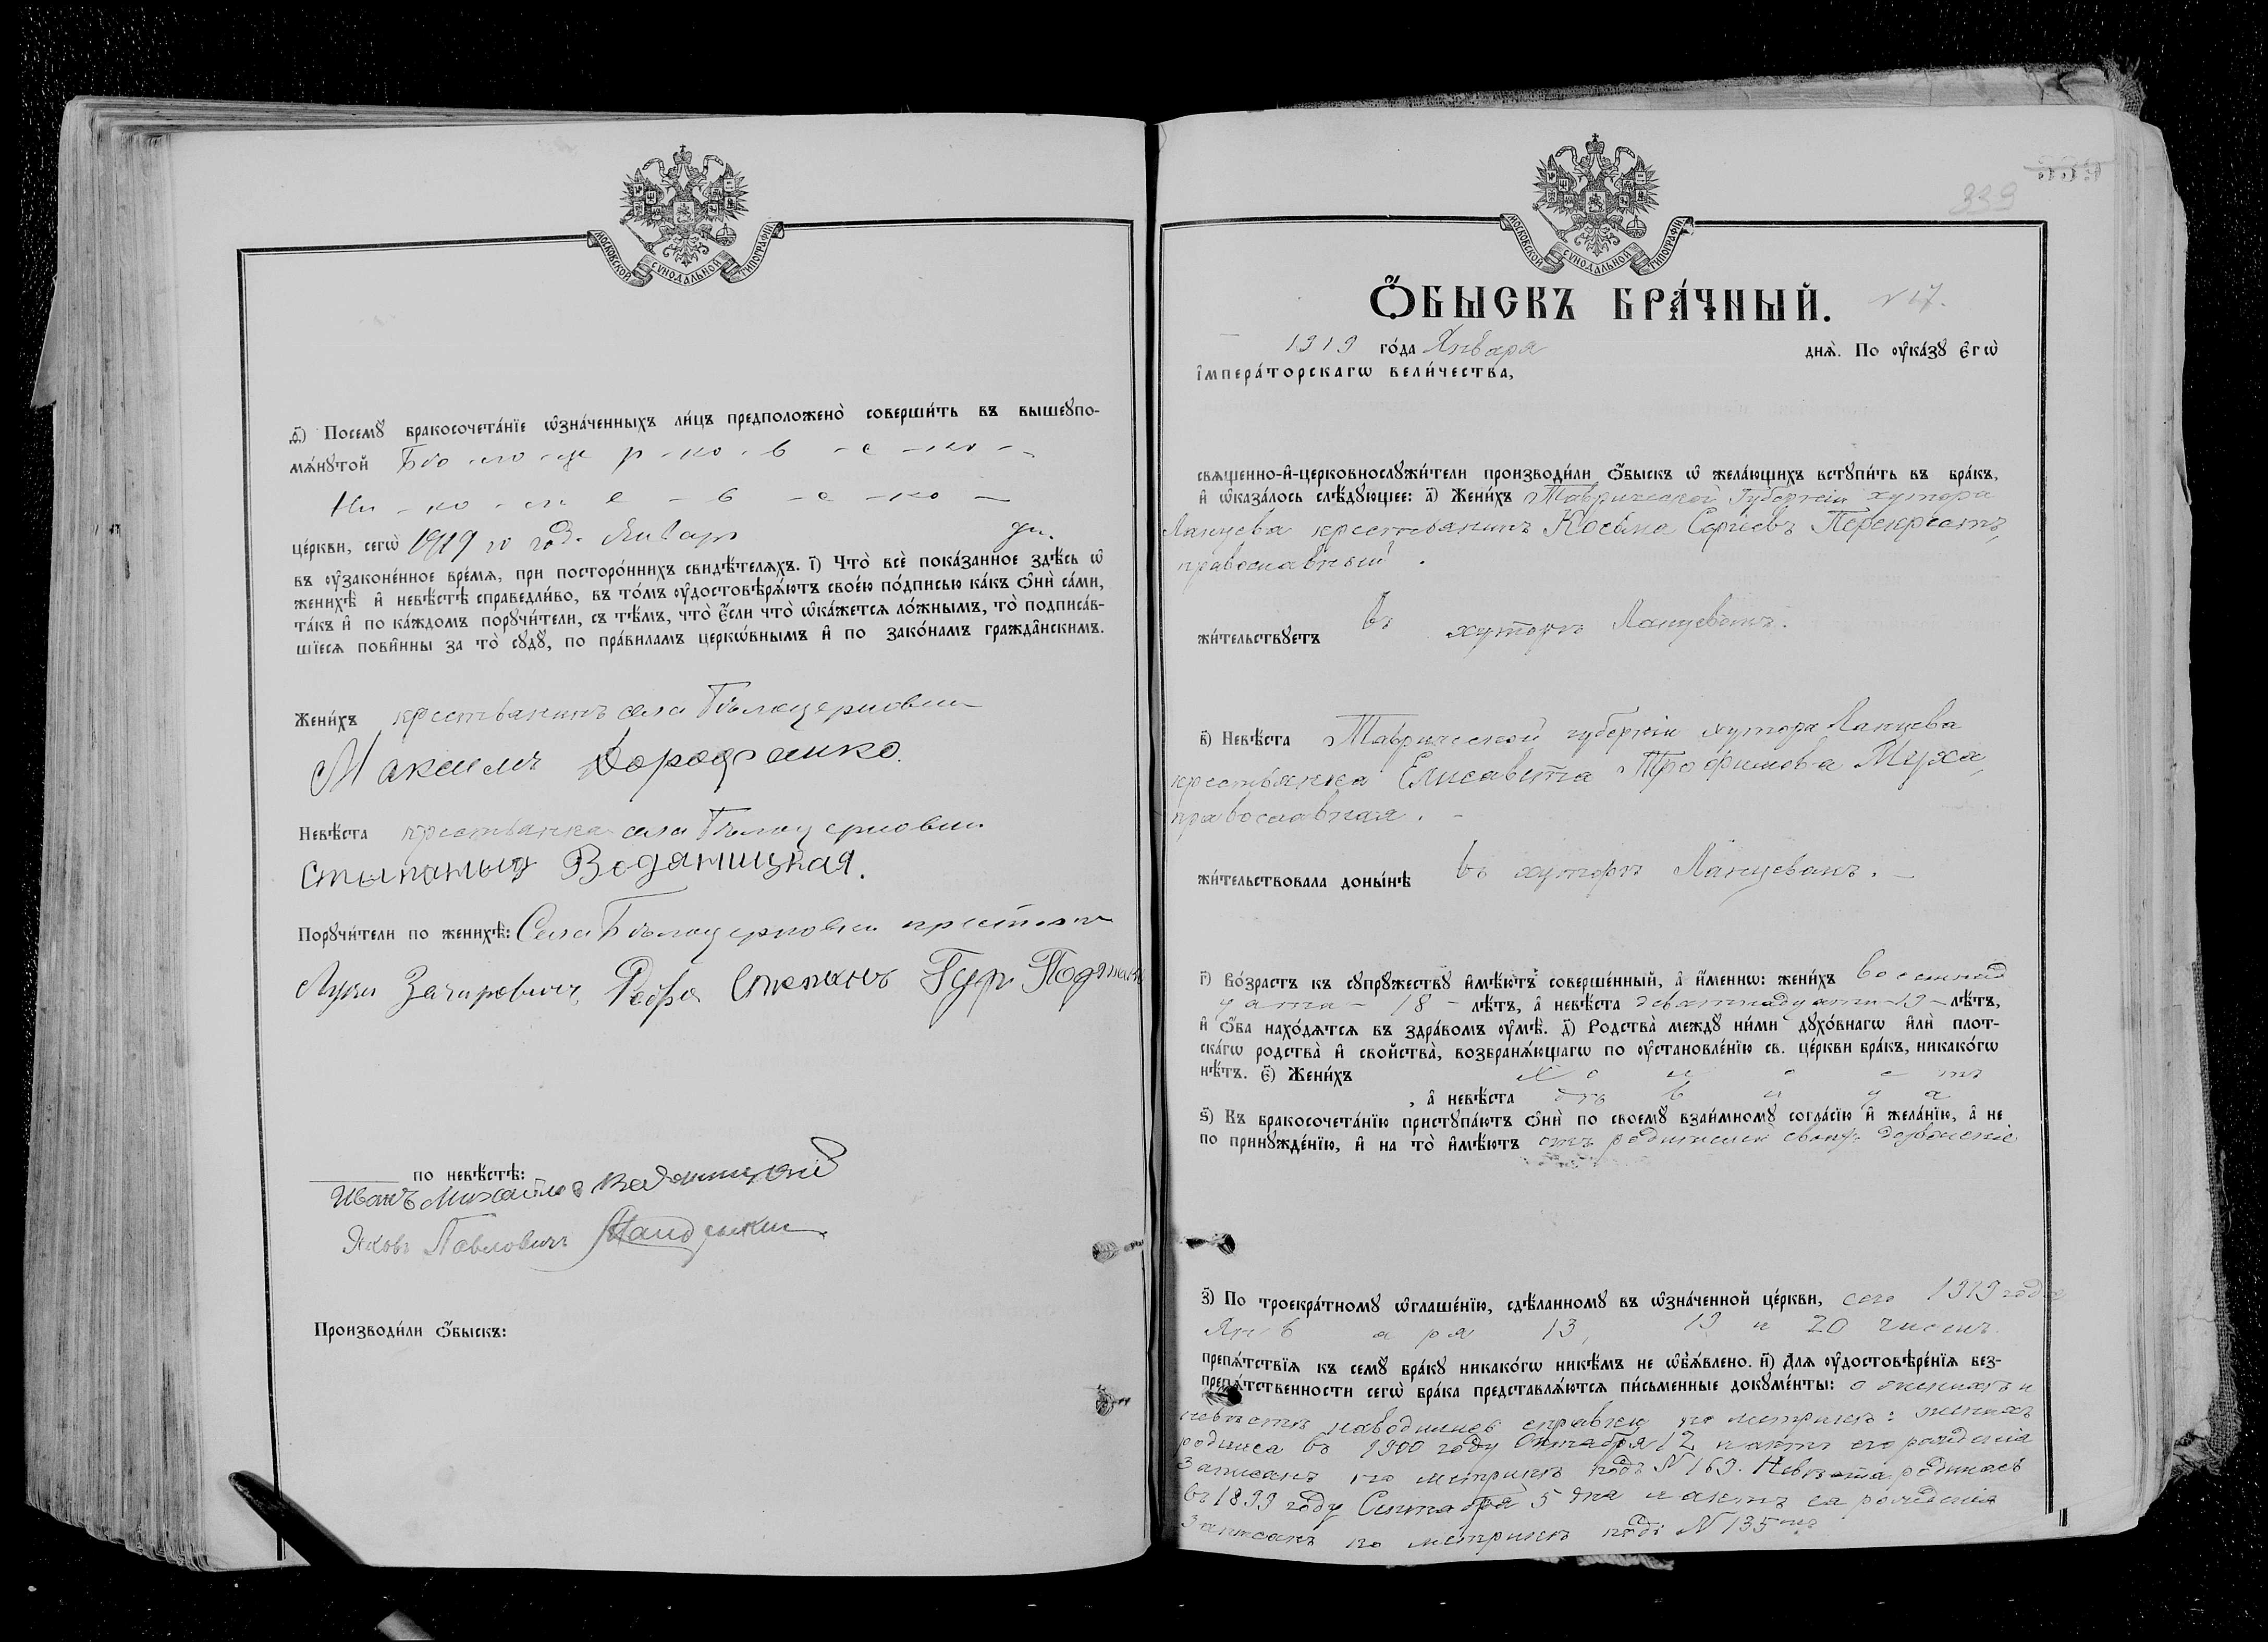 МОСКОВСКОЙ СѴНОДАЛЬНОЙ ТИПОГРАФІИ.
д҃) Посемꙋ̀ бракосочета́нїе ѡ҆зна́ченныхъ ли́цъ предположено̀ соверши́ть въ вышеꙋпо-
мѧ́нꙋтой Бѣлоцерковско-
Ни-ко-л-а-е-в-с-ко-
це́ркви, сегѡ̀ 1919 го год. Январ дн.
въ ᲂу҆законе́нное вре́мѧ, при посторо́ннихъ свидѣ́телѧхъ. і҃) Что̀ всѐ пока́занное здѣ́сь ѡ҆
женихѣ̀ и҆ невѣ́стѣ справедли́во, въ то́мъ ᲂу҆достовѣрѧ́ютъ свое́ю по́дписью ка́къ ѻ҆нѝ са́ми,
та́къ и҆ по ка́ждомъ порꙋчи́тели, съ тѣ́мъ, что̀ є҆́сли что̀ ѡ҆ка́жетсѧ ло́жнымъ, то̀ подписа́в-
шїесѧ пови́нны за то̀ сꙋдꙋ̀, по пра́виламъ церко́внымъ и҆ по зако́намъ гражда́нскимъ.
Жени́хъ крестьянинъ села Бѣлоцерковки
Максимъ Дородзенко.
Невѣ́ста крестьянка села Бѣлоцерковки
Стыпаныда Водяницкая.
Порꙋчи́тели по женихѣ̀: Села Бѣлоцерковки крестьяне
Лука Захаровичъ Рябра Степанъ Гур.
по невѣ́стѣ:
Иванъ Михайло Водяницкій
Яковъ Павловичъ
Производи́ли ѻ҆́быскъ:
339
МОСКОВСКОЙ СѴНОДАЛЬНОЙ ТИПОГРАФІИ.
Ѻ҆́БЫСКЪ БРА́ЧНЫЙ. N 17.
1919 го́да Января днѧ̀. По ᲂу҆ка́зꙋ є҆гѡ̀
і҆мпера́торскагѡ вели́чества,
свѧще́нно-и҆-церковнослꙋжи́тели производи́ли ѻ҆́быскъ ѡ҆ жела́ющихъ встꙋпи́ть въ бра́къ,
и҆ ѡ҆каза́лось слѣ́дꙋющее: а҃) Жени́хъ Таврической Губерніи хутора
Ланцева крестьянинъ Косьма Сергіевъ Перекрестъ,
православный.
жи́тельствꙋетъ въ хуторѣ Ланцевомъ.
в҃) Невѣ́ста Таврической губерніи хутора Ланцева
крестьянка Елисавета Трофимова Муха,
православная. -
жи́тельствовала доны́нѣ въ хуторѣ Ланцевомъ. -
г҃) Во́зрастъ къ сꙋпрꙋ́жествꙋ и҆мѣ́ютъ соверше́нный, а҆ и҆́менно: жени́хъ восемнад
цати - 18 - лѣ́тъ, а҆ невѣ́ста девятнадцати - 19 - лѣ́тъ,
и҆ ѻ҆́ба нахо́дѧтсѧ въ здра́вомъ ᲂу҆мѣ̀. д҃) Родства̀ междꙋ̀ ни́ми дꙋхо́внагѡ и҆лѝ плот-
ска́гѡ родства̀ и҆ свойства̀, возбранѧ́ющагѡ по ᲂу҆становле́нїю св. це́ркви бра́къ, никако́гѡ
нѣ́тъ. є҃) Жени́хъ холостъ
, а҆ невѣ́ста дѣвица
ѕ҃) Въ бракосочета́нїю пристꙋпа́ютъ ѻ҆нѝ по своемꙋ̀ взаи́мномꙋ согла́сїю и҆ жела́нїю, а҆ не
по принꙋжде́нїю, и҆ на то̀ и҆мѣ́ютъ отъ родителей своихъ дозволеніе
з҃) По троекра́тномꙋ ѡ҆глаше́нїю, сдѣ́ланномꙋ въ ѡ҆зна́ченной це́ркви, сего 1919 года
Января 13, 19 и 20 чиселъ
препѧ́тствїѧ къ семꙋ̀ бра́кꙋ никако́гѡ никѣ́мъ не ѡ҆б̾ѧ́влено. и҃) Для ᲂу҆достовѣре́нїѧ без-
препѧ́тственности сегѡ̀ бра́ка представлѧ́ютсѧ пи́сьменные докꙋме́нты: о женихѣ и
невѣстѣ наводились справки по метрикѣ: женихъ
родился въ 1900 году Октября 12 и актъ его рожденія
записанъ по метрикѣ подъ N 169. Невѣста родилась
въ 1899 году Сентября 5 дня и актъ ея рожденія
записанъ по метрикѣ подъ N 135мъ